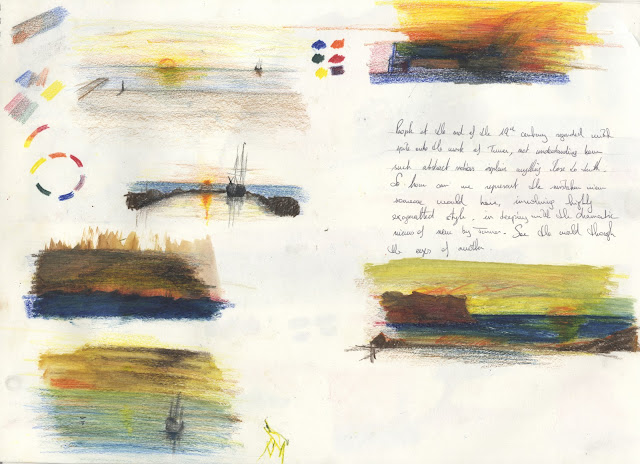 People at the end of the 19th century regarded with
quite the work of Turner, not understanding how
such abstract notion explain anything close to truth.
So how can we represent the mistaken view
someone would have, involving highly
exagerated style. in keeping with the dramatic
views of new by Turner. See the world though
the eyes of another.